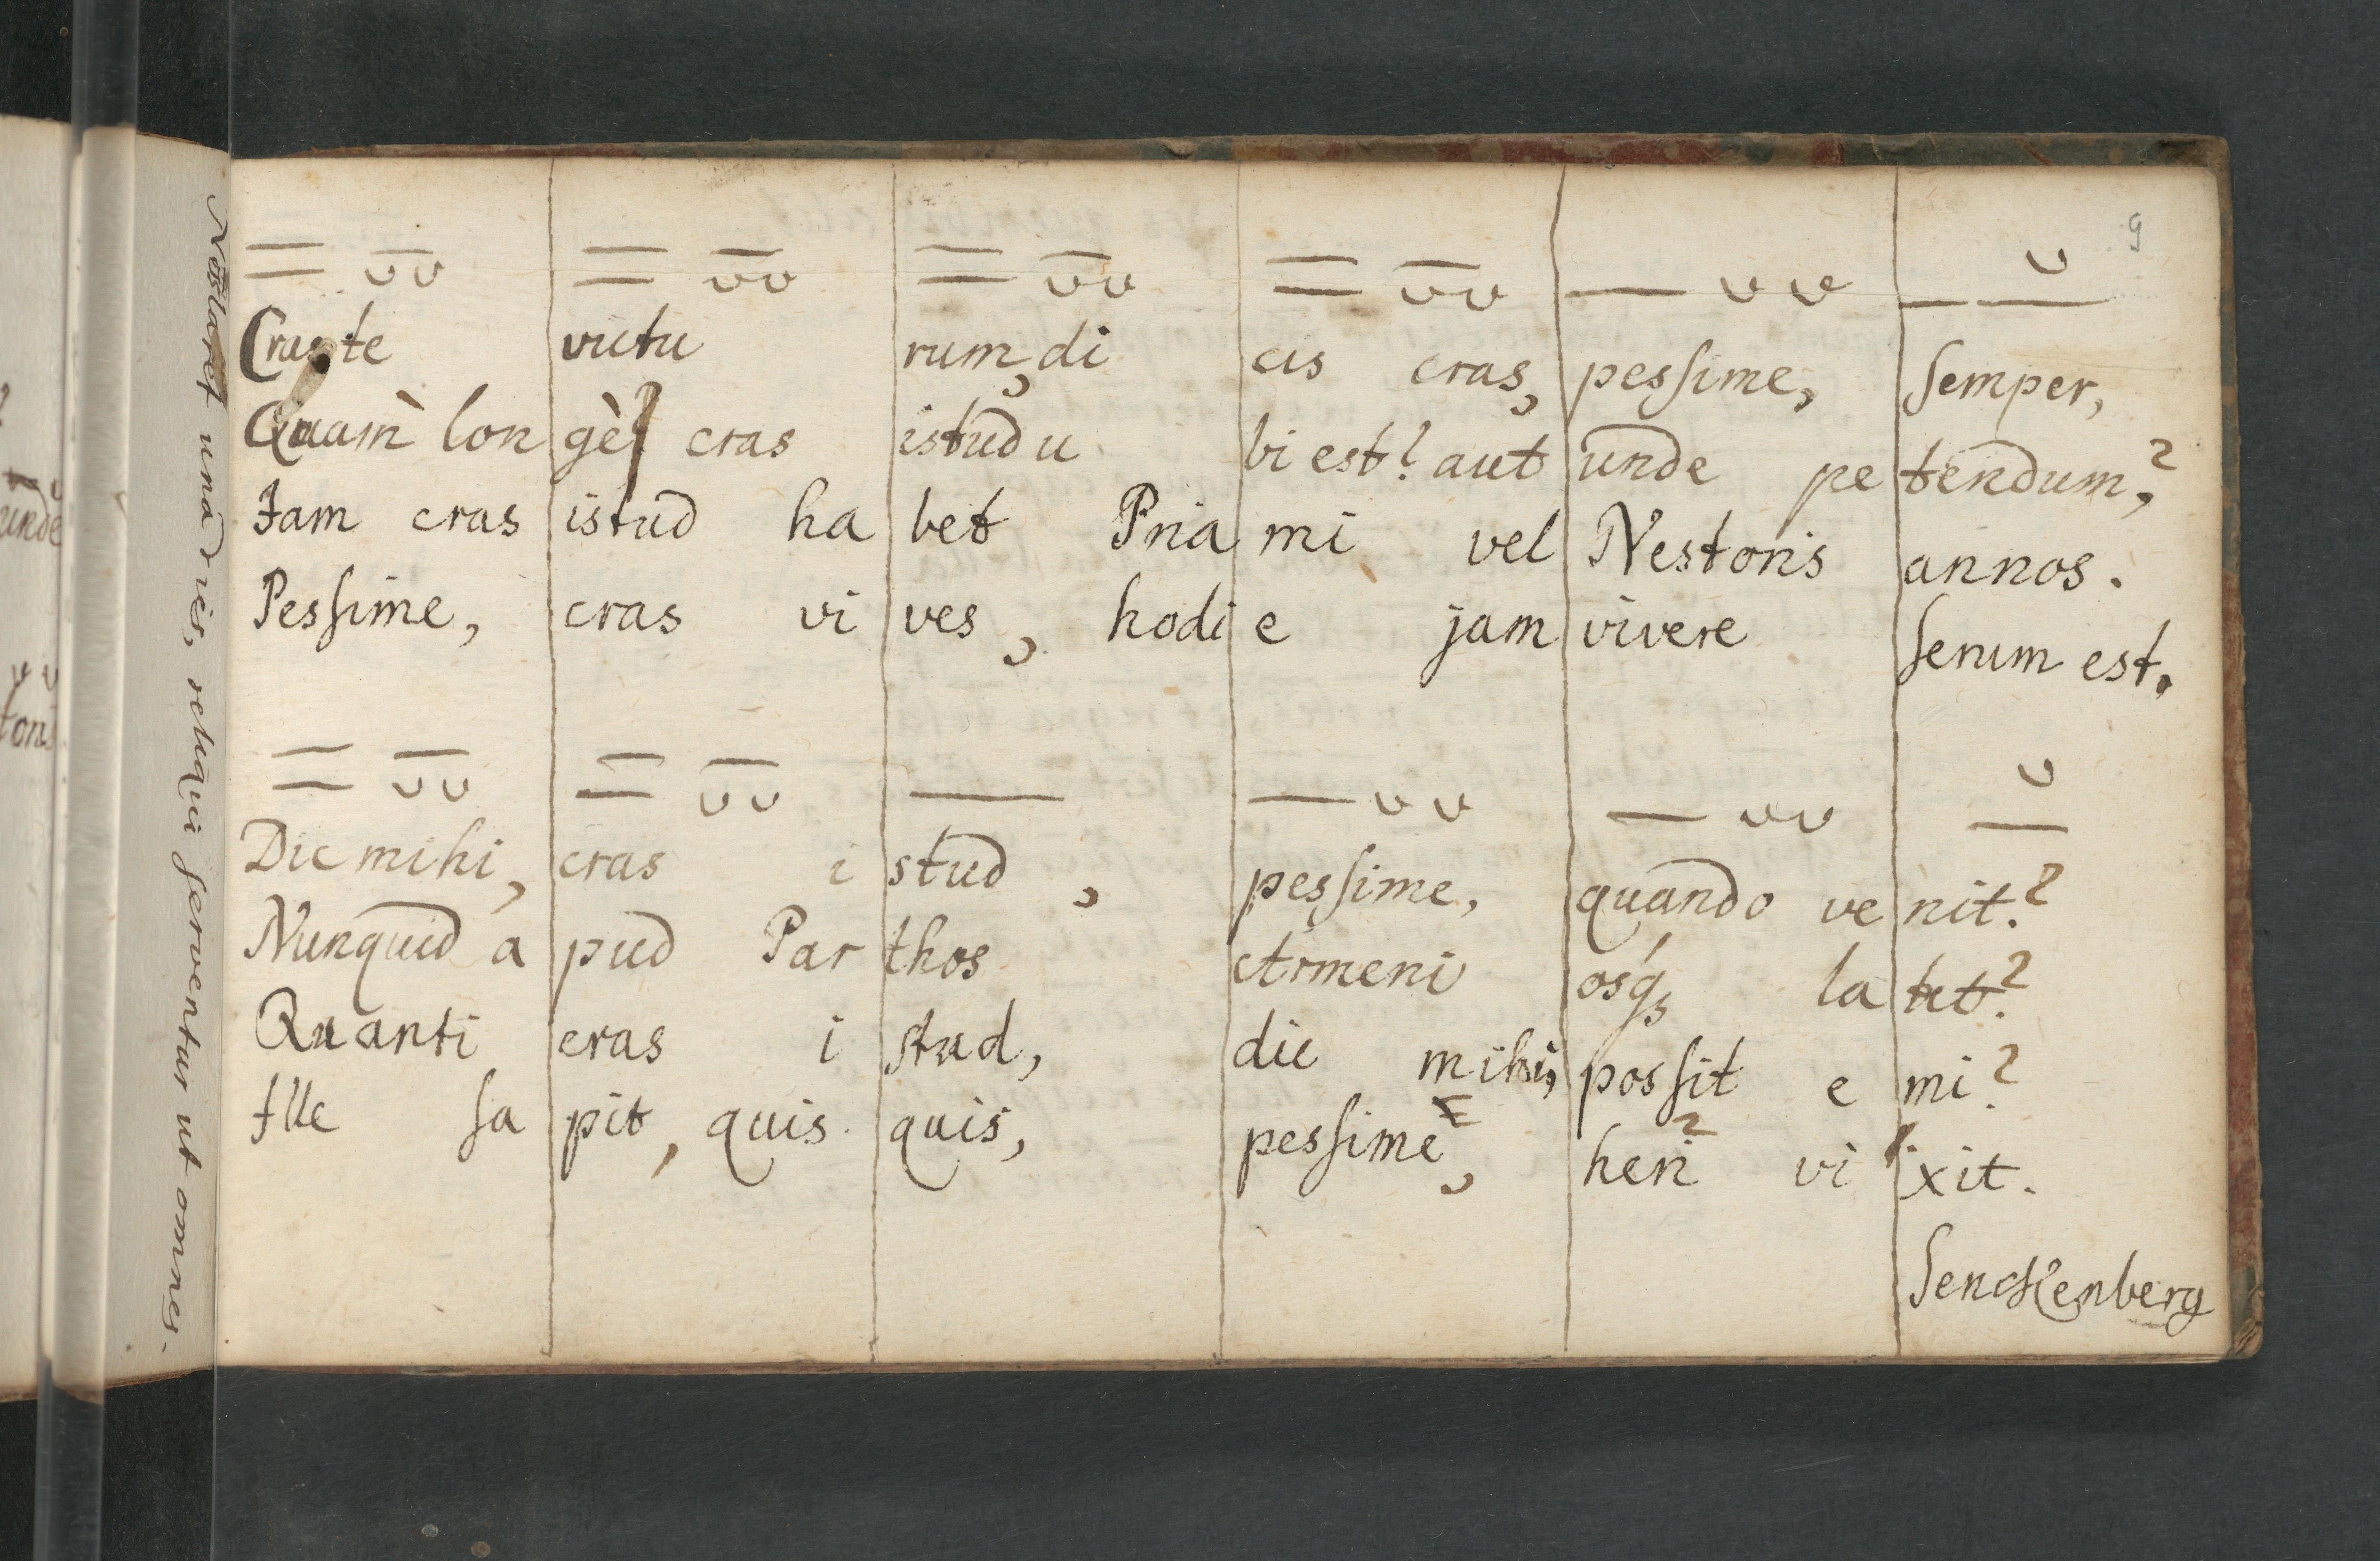 9
Cras te victu rum, di cis cras, pesſime, ſemper,
Quam̀ lon gè cras istud u bi est? aut unde pe tendum,?
Jam cras istud ha bet Pria mi vel Nestoris annos.
Pesſime, cras vi ves, hodi e jam vivere ſerum est.
Dic mihi, cras i stud, pesſime, quando ve nit.?
Nunquid a pud Par thos Armeni osq́ꝫ la tet.?
Quanti cras i stud, dic mihi, posſit e mi?
Ille ſa pit, quis quis, pesſime, heri vi xit.
Senckenberg
una dies, reliqui ſerventur ut omnes.
unde
toris